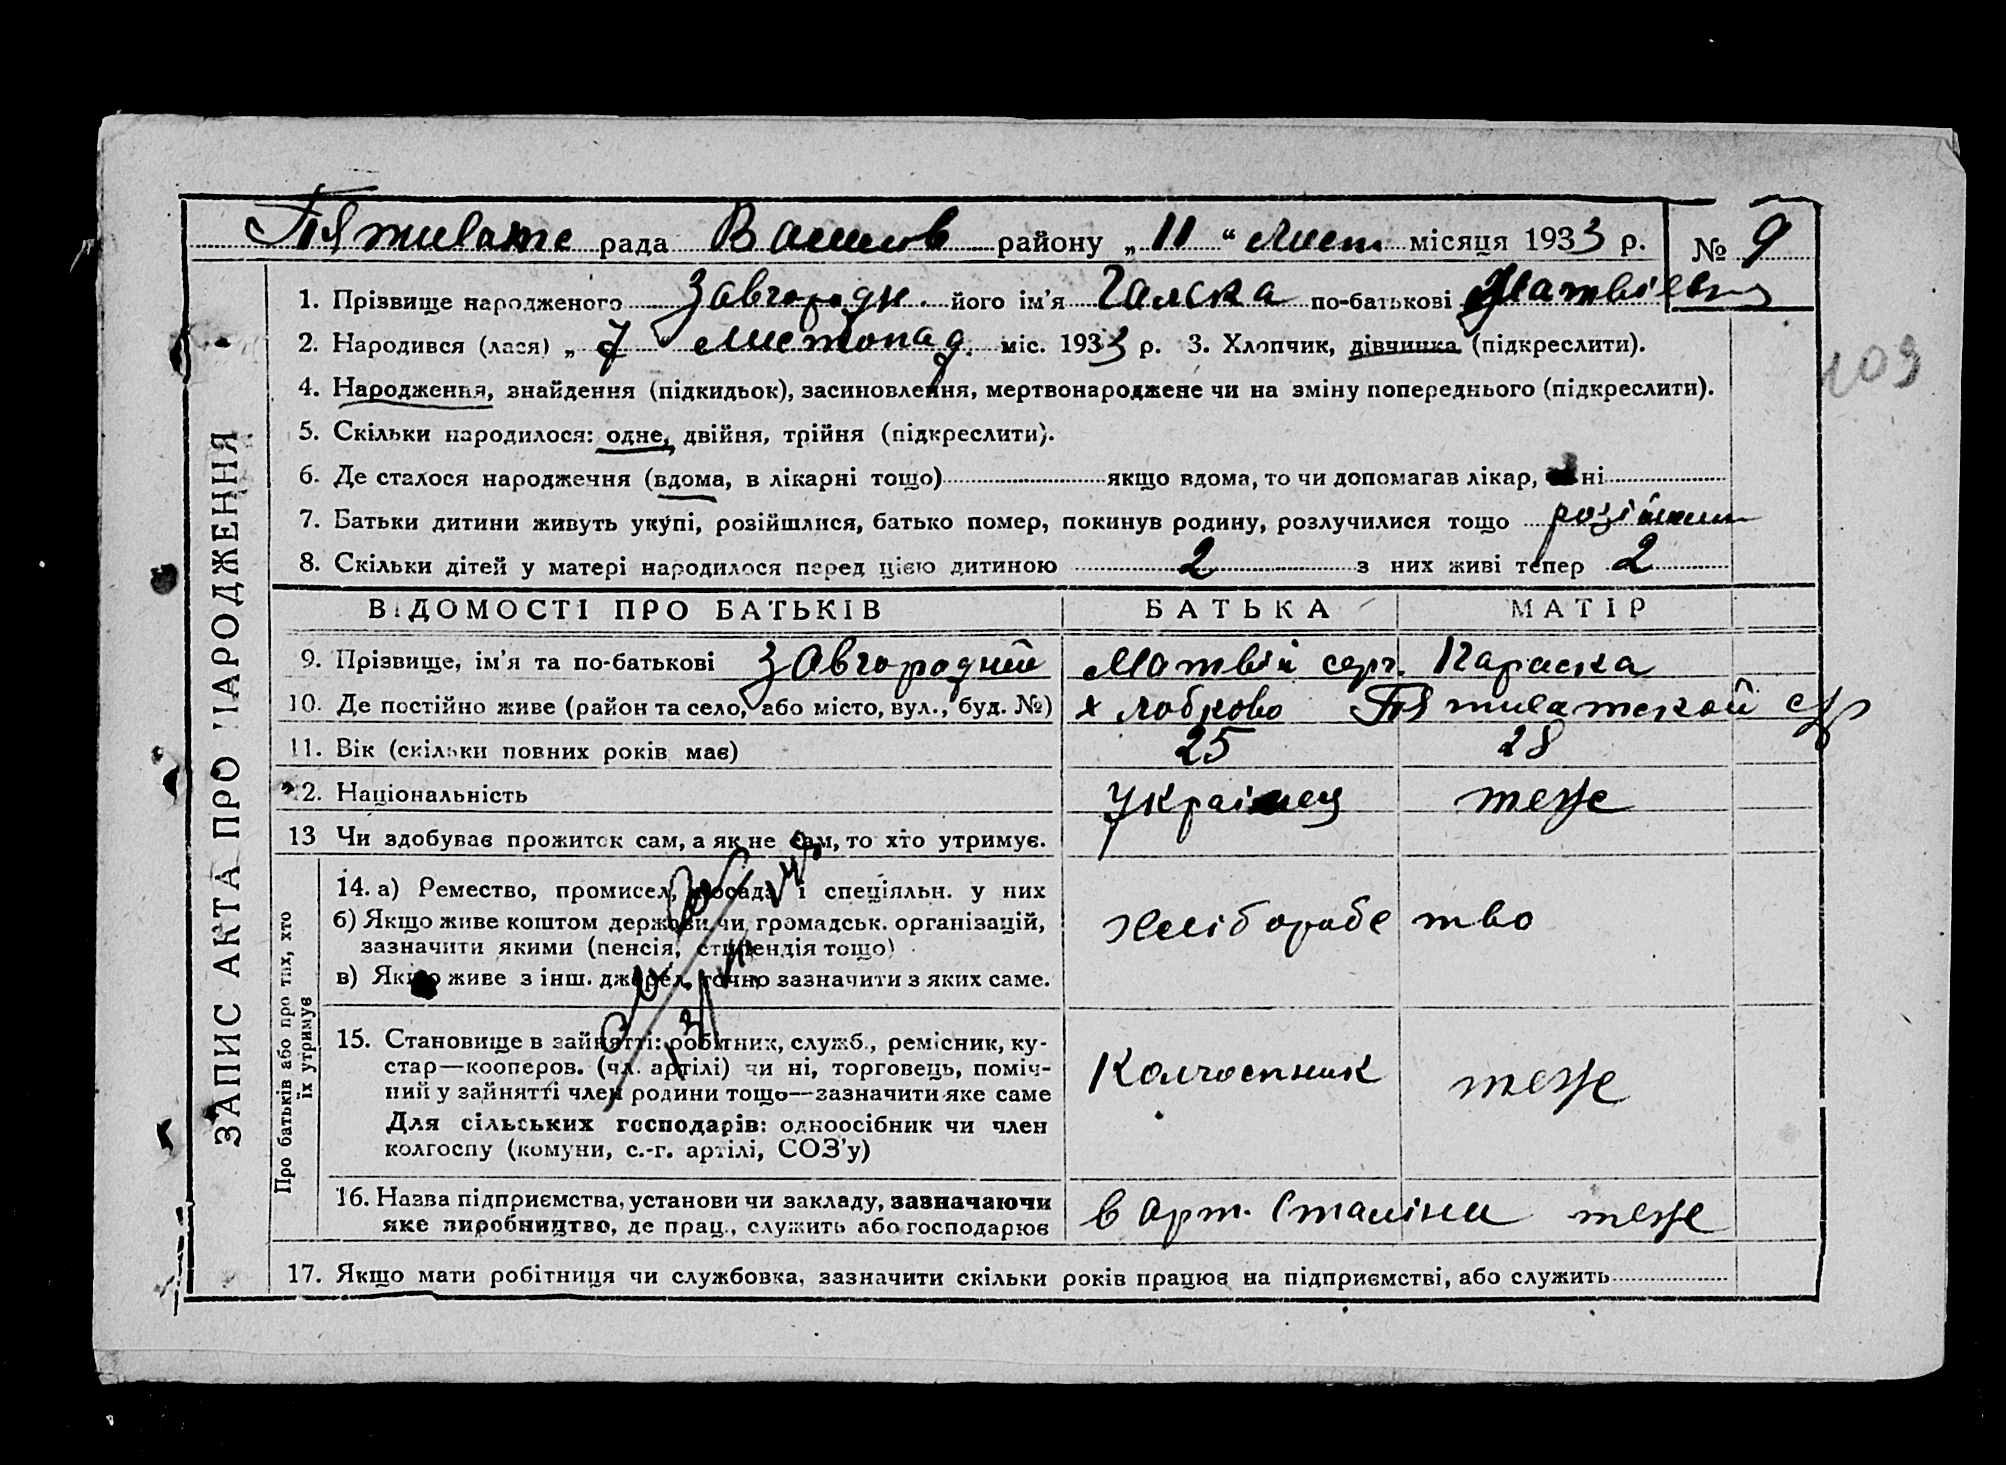 Пятилатне рада Вашков району „ 11 “ Лист місяця 1933 р. № 9
1. Прізвище народженого Завгородн. його ім’я Галска по-батькові Матвіевн
2. Народився (лася) „ 7 “ Листопад. міс. 1933 р. 3. Хлопчик, дівчинка (підкреслити).
103
4. Народження, знайдення (підкидьок), засиновлення, мертвонароджене чи на зміну попереднього (підкреслити).
5. Скільки народилося: одне, двійня, трійня (підкреслити).
6. Де сталося народження (вдома, в лікарні тощо) якщо вдома, то чи допомагав лікар, ні
7. Батьки дитини живуть укупі, розійшлися, батько помер, покинув родину, розлучилися тощо розійшли
8. Скільки дітей у матері народилося перед цією дитиною 2 з них живі тепер 2
ВІДОМОСТІ ПРО БАТЬКІВ БАТЬКА МАТІР
9. Прізвище, ім’я та по-батькові Завгородний Матвій серг. Параска
10. Де постійно живе (район та село, або місто, вул., буд. №) х Лобково Пятилатской с/р
11. Вік (скільки повних років має) 25 28
12. Національність Украінец теже
13 Чи здобував прожиток сам, а як не сам, то хто утримує.
14. а) Ремество, промисел, посада і спеціяльн. у них
б) Якщо живе коштом держави чи громадськ. організацій,
зазначити якими (пенсія, стипендія тощо)
в) Якщо живе з інш. джерел, точно зазначити з яких саме.
хліборобс тво
15. Становище в зайнятті: робітник, служб., ремісник, ку-
стар—кооперов. (чл. артілі) чи ні, торговець, поміч-
ний у зайнятті член родини тощо—зазначити яке саме
Для сільських господарів: одноосібник чи член
колгоспу (комуни, с.-г. артілі, СОЗ’у)
Колгоспник теже
16. Назва підприємства, установи чи закладу, зазначаючи
яке виробництво, де прац., служить або господарює
в арт. Сталіна теже
17. Якщо мати робітниця чи службовка, зазначити скільки років працює на підприємстві, або служить
ЗАПИС АКТА ПРО НАРОДЖЕННЯ
Про батьків або про тих, хто
їх утримує